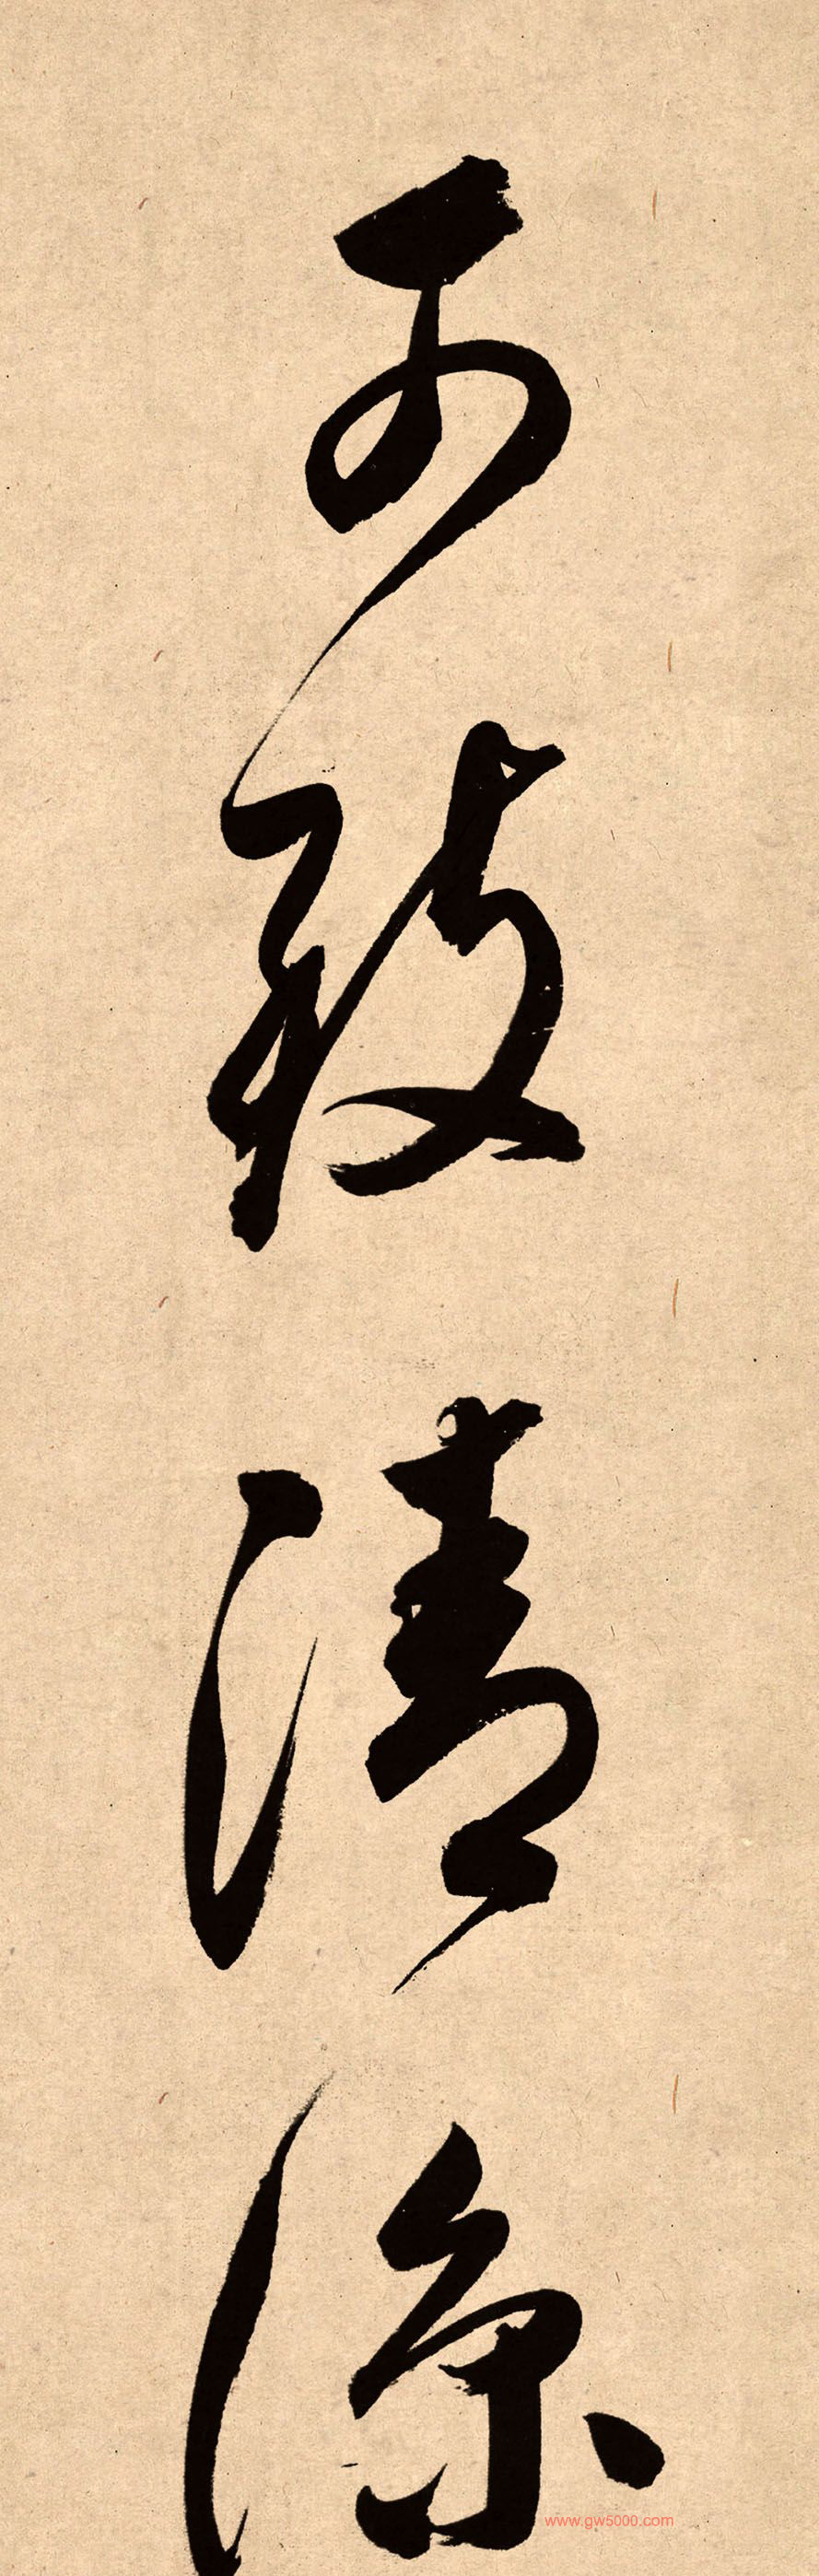 可致清涼
www.gw5000.com